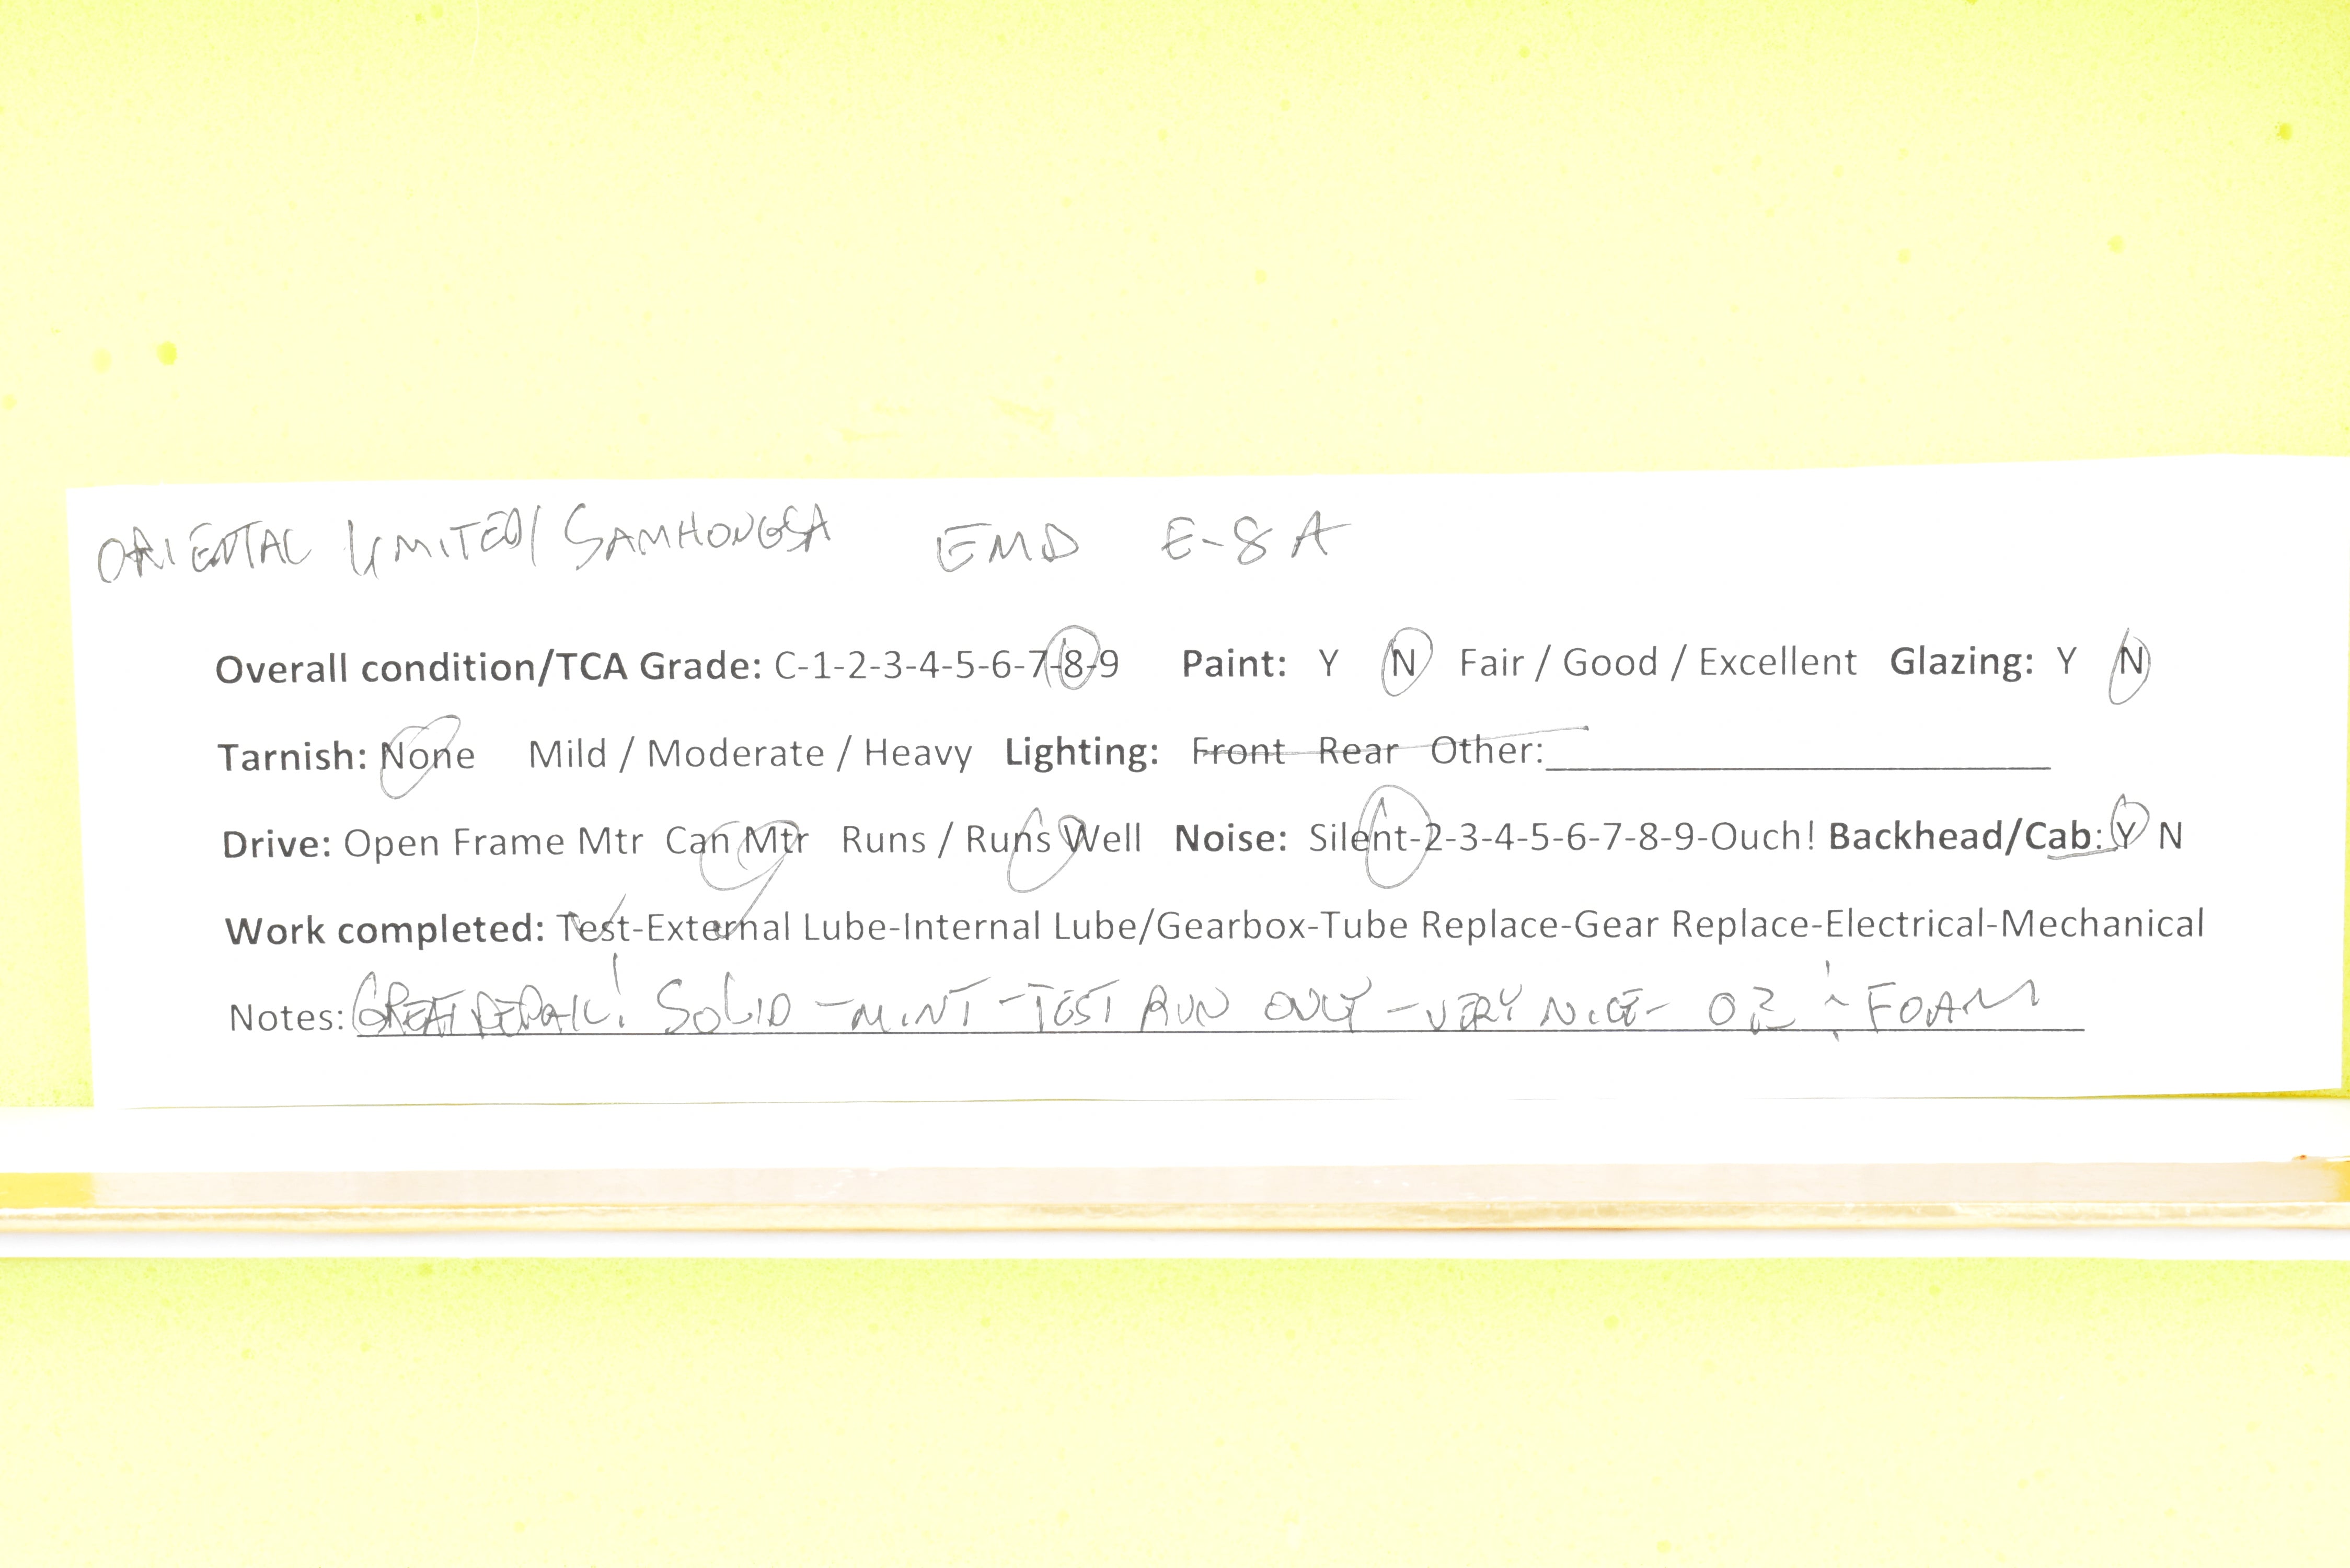 ORIENTAL LIMITED/SAMHONGSA EMD E-8 A
Overall condition/TCA Grade: C-1-2-3-4-5-6-7-8-9 Paint: Y N Fair / Good / Excellent Glazing: Y N
Tarnish: None Mild / Moderate / Heavy Lighting: Front Rear Other:
Drive: Open Frame Mtr Can Mtr Runs / Runs Well Noise: Silent-2-3-4-5-6-7-8-9-Ouch! Backhead/Cab: Y N
Work completed: Test-External Lube-Internal Lube/Gearbox-Tube Replace-Gear Replace-Electrical-Mechanical
Notes: GREAT DETAIL! SOLID - MINT - TEST RUN ONLY - VERY NICE - FOAM